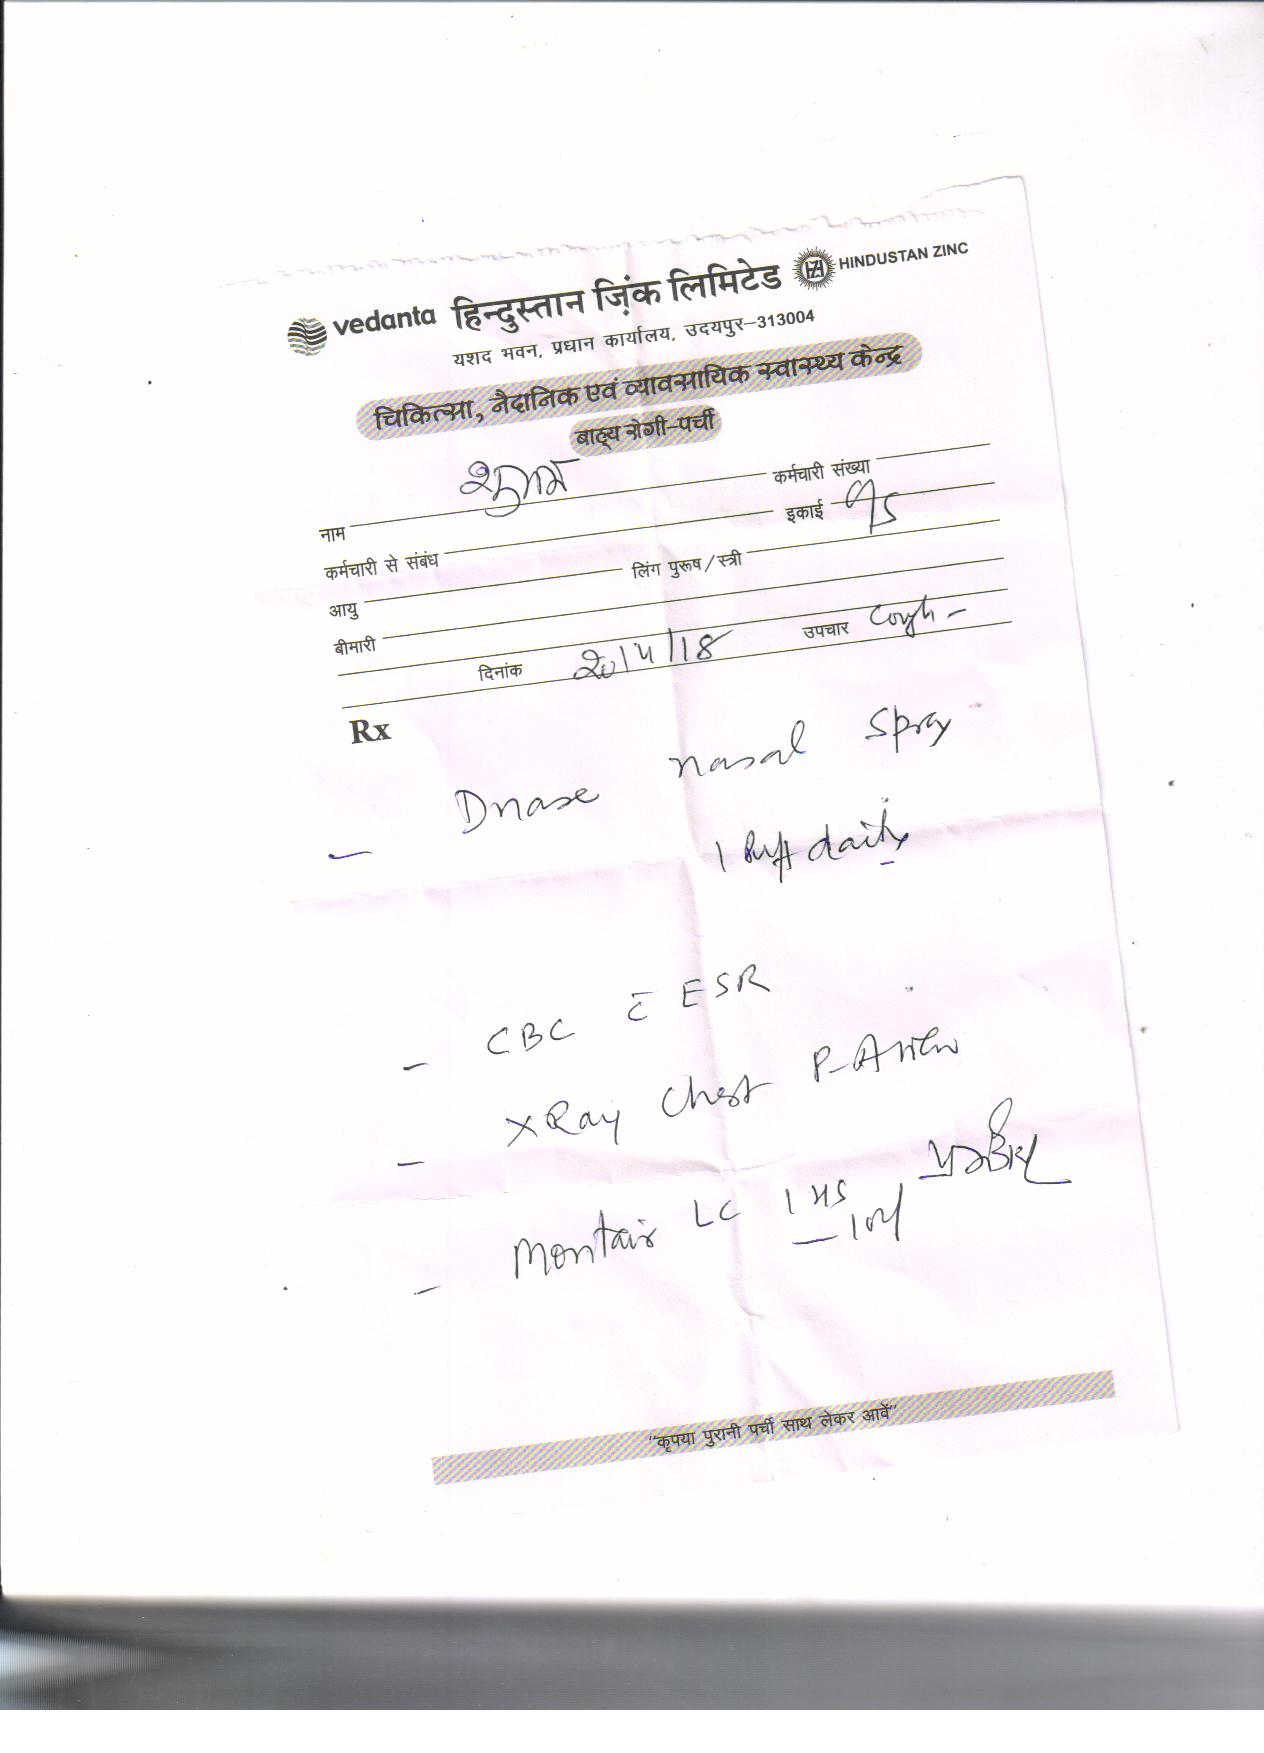 vedanta हिन्दुस्तान ज़िंक लिमिटेड HINDUSTAN ZINC
यशद भवन, प्रधान कार्यालय, उदयपुर–313004
चिकित्सा, नैदानिक एवं व्यावसायिक स्वास्थ्य केन्द्र
बाह्य रोगी–पर्ची
नाम कर्मचारी संख्या
कर्मचारी से संबंध इकाई
आयु लिंग पुरूष/स्त्री
बीमारी
दिनांक 20/4/18 उपचार Cough –
Rx
– Dnase nasal spray
1 Puff daily
– CBC c̄ ESR
– X Ray Chest P-A view
– Montair LC 1 HS
"कृपया पुरानी पर्ची साथ लेकर आवें"